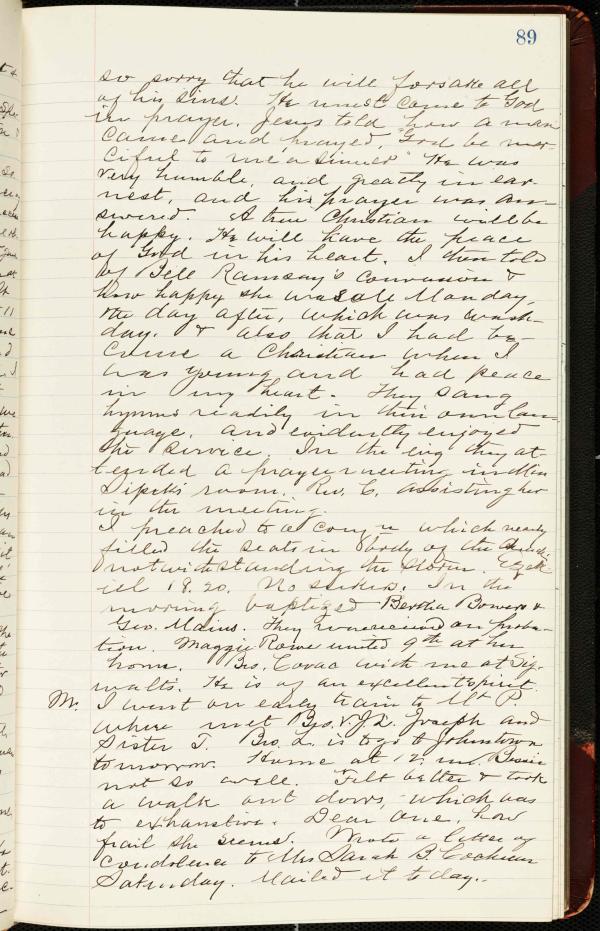 89
so sorry that he will forsake all
of his sins. He must come to God
in prayer. Jesus told how a man
came and prayed, "God be mer-
ciful to me a sinner" He was
very humble, and greatly in ear-
nest, and his prayer was an-
swered. A true Christian will be
happy. He will have the peace
of God in his heart. I then told
of Bell Ramsay's conversion &
how happy she was all Monday,
the day after, which was wash-
day. & also that I had be-
come a Christian when I
was young and had peace
in my heart. They sang
hymns readily in their own lan-
guage, and evidently enjoyed
the service. In the evg they at-
tended a prayer meeting in Miss
room. Rev. C. assisting her
in the meeting.
I preached to a cong'n which nearly
filled the seats in body of the church
notwithstanding the storm. Ezek-
iel 18.20. No seekers. In the
morning baptized Bertha Bowers &
Geo. Mains. They were received on proba-
tion. Maggie Rowe united 9th at her
home. Bro. Covac with me at Sig-
walts. He is of an excellent spirit.
M. I went on early train to Mt P.
where met Bro. L. Joseph and
Sister J. Bro. L. is to go to Johnstown
tomorrow. Home at 12 m. Bessie
not so well. Felt better & took
a walk out doors, which was
to exhaustive. Dear one, how
frail she seems. Wrote a letter of
condolence to Mrs Sarah B. Cochran
Saturday. Mailed it today.